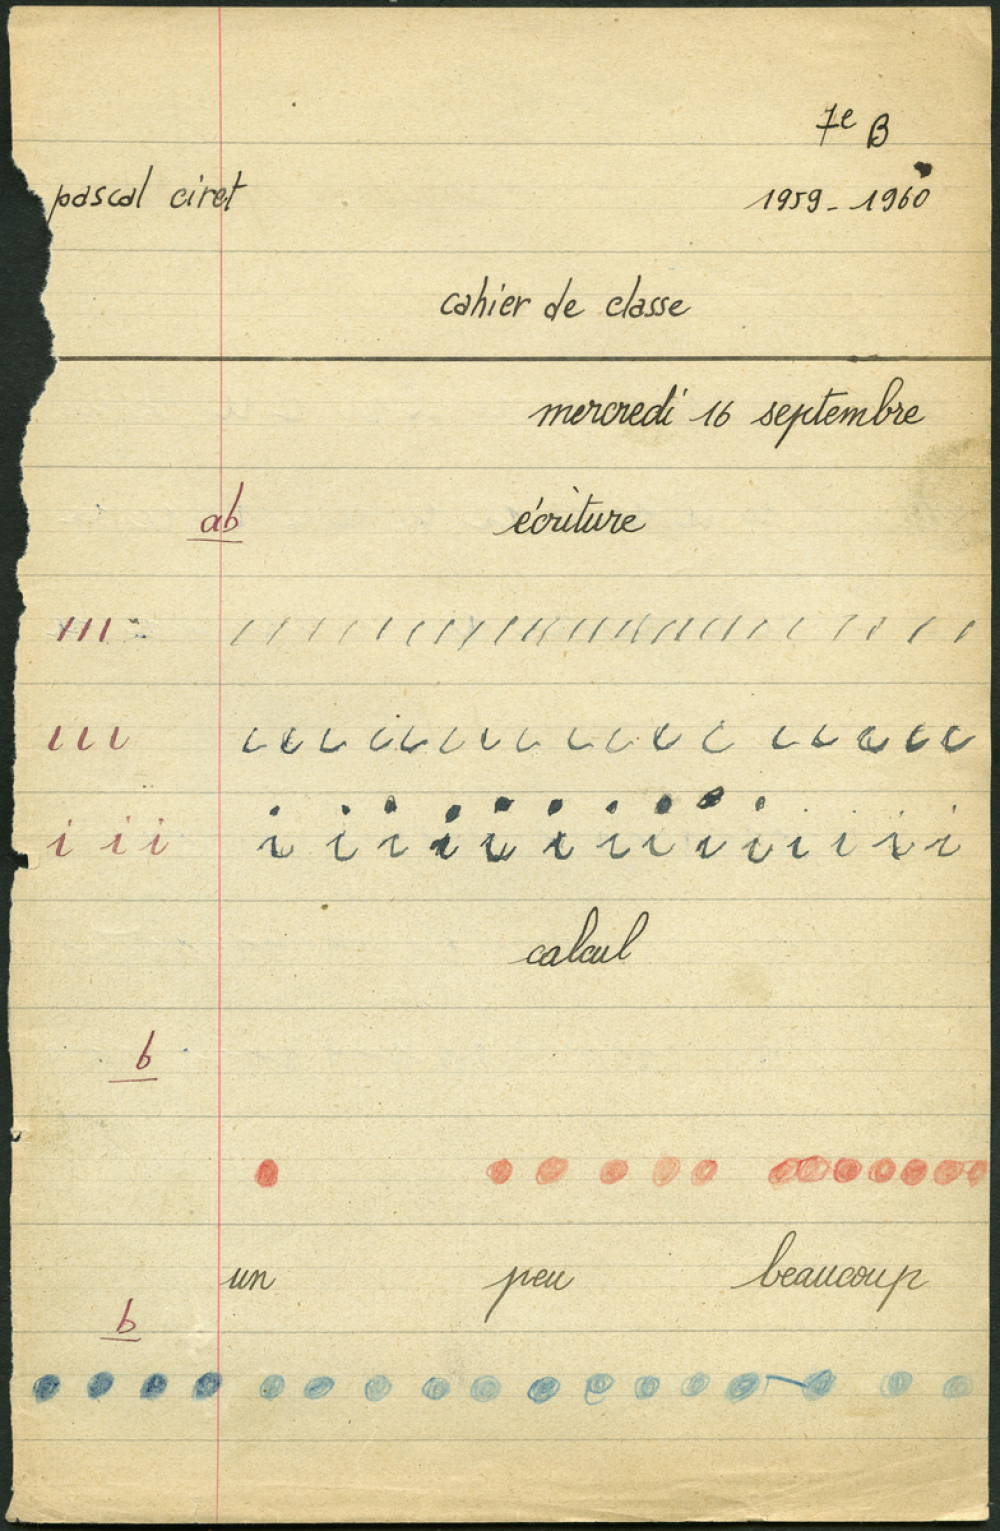 7e B
pascal ciret 1959 - 1960
cahier de classe
mercredi 16 septembre
ab écriture
ı ı ı
i i i i i i i i i i i i i i i i i
calcul
b
un peu beaucoup
b